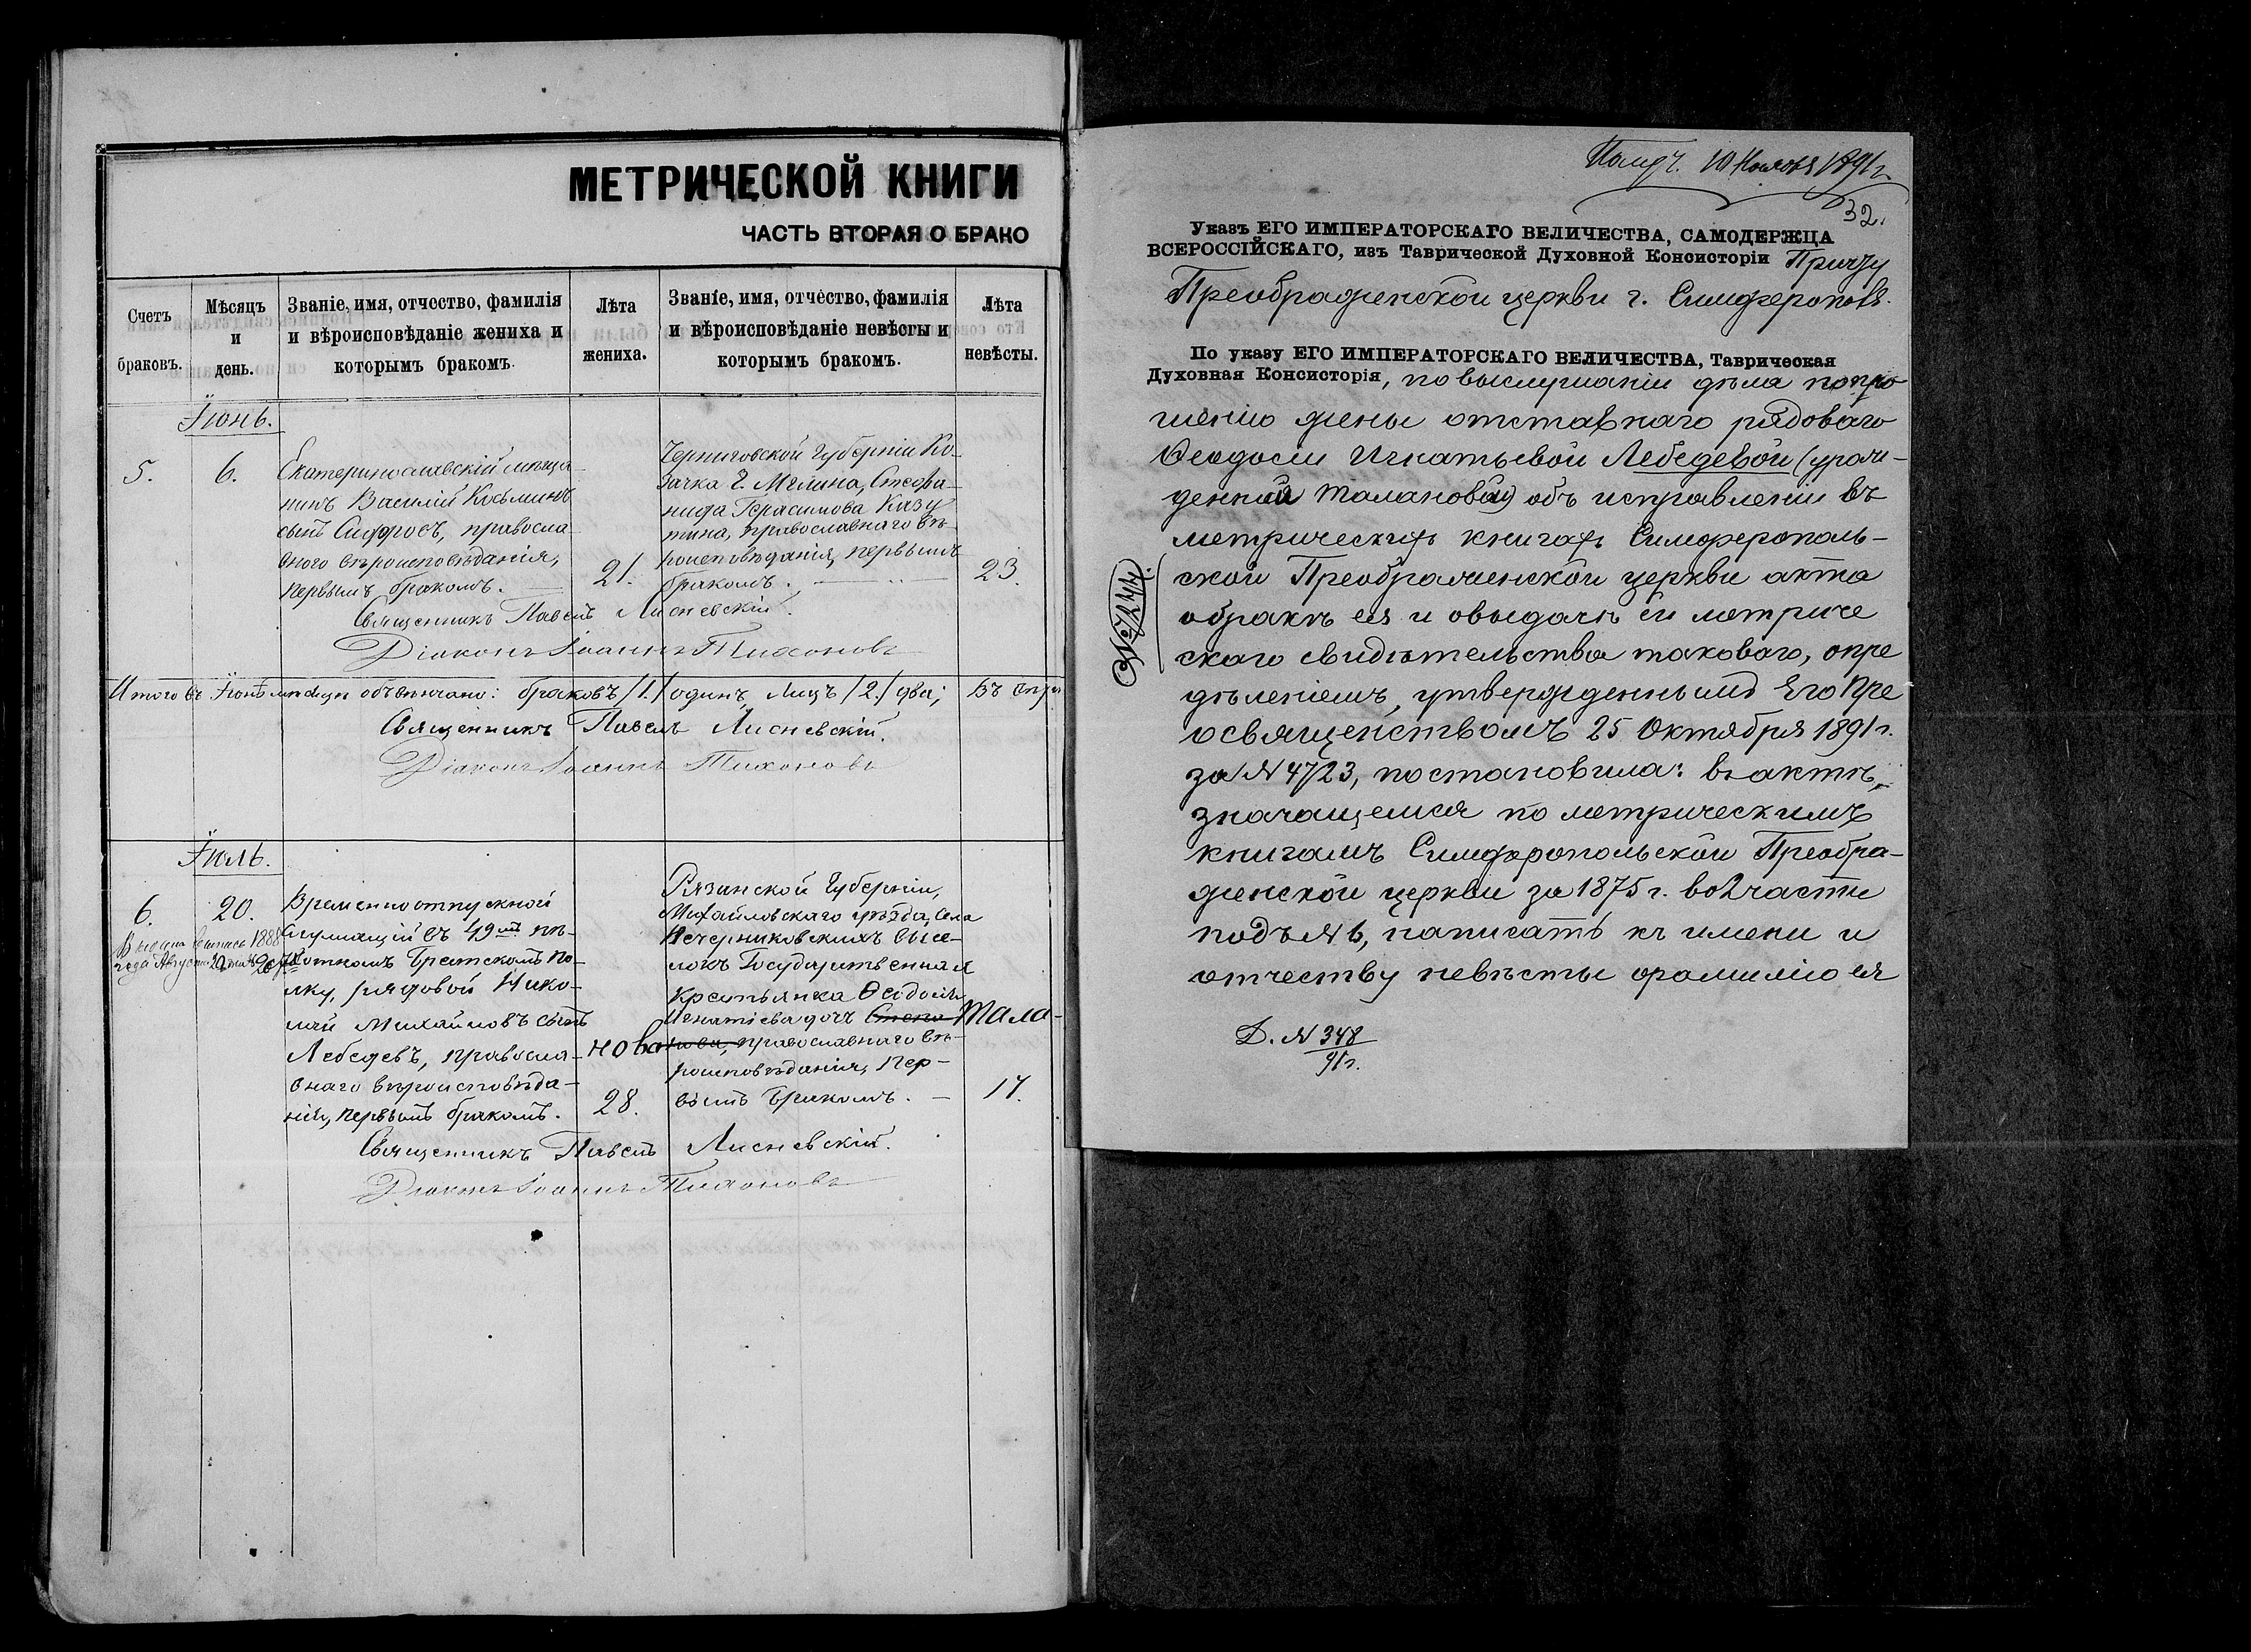 МЕТРИЧЕСКОЙ КНИГИ
ЧАСТЬ ВТОРАЯ О БРАКО
Счетъ браковъ.
Мѣсяцъ и день.
Званіе, имя, отчество, фамилія и вѣроисповѣданіе жениха и которымъ бракомъ.
Лѣта жениха.
Званіе, имя, отчество, фамилія и вѣроисповѣданіе невѣсты и которымъ бракомъ.
Лѣта невѣсты.
Іюнь.
5.
6.
Екатеринославскій мѣща-
нинъ Василій Козьминъ
сынъ
православ-
наго вѣроисповѣданія,
первымъ бракомъ.
21.
Черниговской Губерніи Ко-
зачка г. Мглина, Стефа-
нида Герасимова
православнаго вѣ-
роисповѣданія, первымъ
бракомъ.
23.
Священникъ Павелъ Лисневскій.
Діаконъ Іоаннъ Тихоновъ
Итого въ Іюнѣ мѣсяцѣ обвѣнчано: браковъ /1./ одинъ, лицъ /2./ два;
Священникъ Павелъ Лисневскій.
Діаконъ Іоаннъ Тихоновъ
Іюль.
6.
20.
Выдана выпись 1888
года Августа
Временноотпускной
служащій въ 49мъ пѣ-
хотномъ Брестскомъ по-
лку, рядовой Нико-
лай Михайловъ сынъ
Лебедевъ, православ-
наго вѣроисповѣда-
нія, первымъ бракомъ.
28.
Рязанской Губерніи,
Михайловскаго уѣзда, села
Печерниковскихъ высе-
локъ Государственная
крестьянка Ѳеодосія
Игнатіева дочь Тала-
нова православнаго вѣ-
роисповѣданія, пер-
вымъ бракомъ.
17.
Священникъ Павелъ Лисневскій.
Діаконъ Іоаннъ Тихоновъ
Получ. 10 Ноября 1891 г.
32.
Указъ ЕГО ИМПЕРАТОРСКАГО ВЕЛИЧЕСТВА, САМОДЕРЖЦА
ВСЕРОССІЙСКАГО, изъ Таврической Духовной Консисторіи Причту
Преображенской церкви г. Симферополя.
По указу ЕГО ИМПЕРАТОРСКАГО ВЕЛИЧЕСТВА, Таврическая
Духовная Консисторія, по выслушаніи дѣла по про-
шенію жены отставнаго рядоваго
Ѳеодосіи Игнатьевой Лебедевой (урож-
денной Талановой) объ исправленіи въ
метрическихъ книгахъ Симферополь-
ской Преображенской церкви акта
о бракѣ ея и о выдачѣ ей метриче
скаго свидѣтельства таковаго, опре
дѣленіемъ, утвержденнымъ Его Пре
освященствомъ 25 Октября 1891 г.
за № 4723, постановила: въ актѣ,
значащемся по метрическимъ
книгамъ Симферопольской Преобра-
женской церкви за 1875 г. во 2 части
подъ № 6, написать къ имени и
отчеству невѣсты фамилію ея
Д. № 348
91 г.
№ 7244.